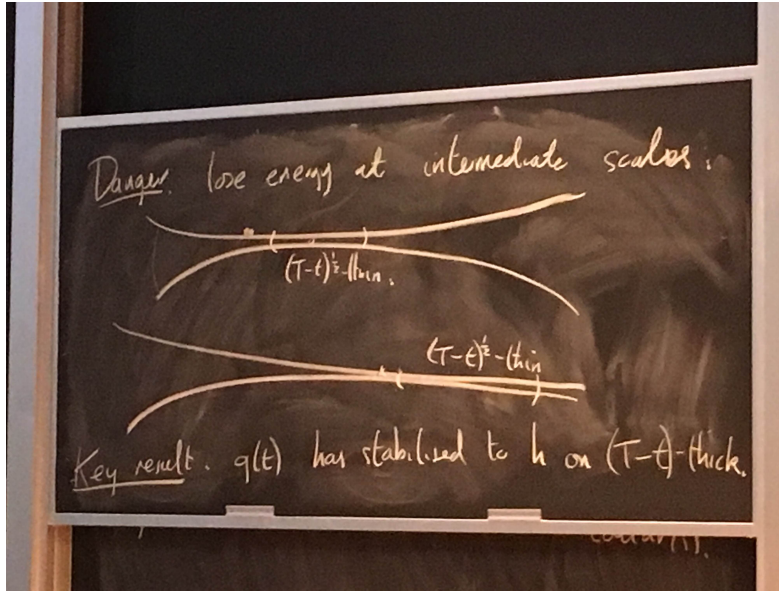 Danger. lose energy at intermediate scales:
(T-t)^½-thin.
(T-t)^½-thin
Key result. g(t) has stabilised to h on (T-t)-thick.